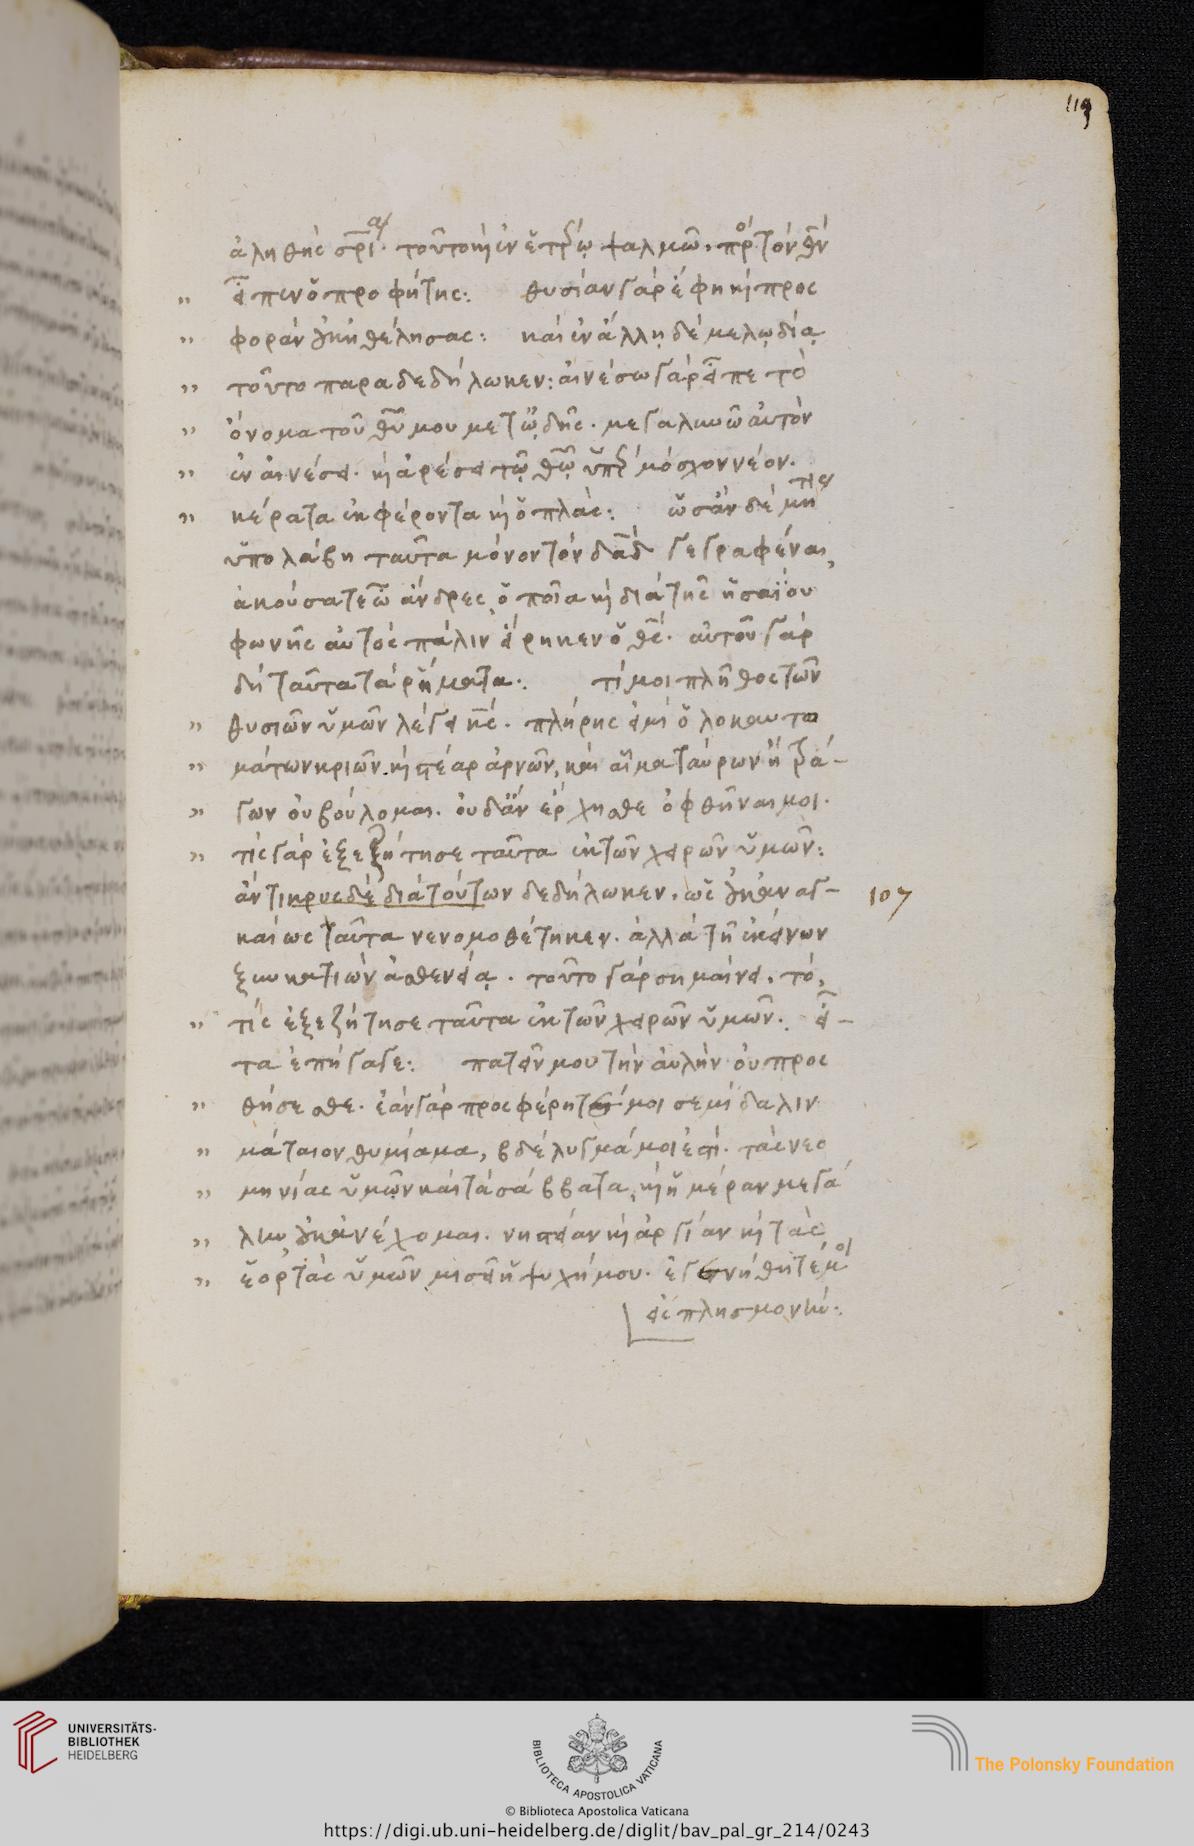 119
ἀληθὴς σρία. τοῦτο κὶ ἐν ἑτρῳ ψαλμῶ. πρ τὸν θν
εἶπεν ὁ προφήτης: θυσίαν γὰρ ἔφη κὶ προς
φορὰν οὐκ ἠθέλησας: καὶ ἐν ἄλλῃ δὲ μελῳδίᾳ
τοῦτο παραδεδήλωκεν: αἰνέσω γὰρ εἶπε τὸ
ὄνομα τοῦ θυ μου μετ ὠδῆς. μεγαλυνῶ αὐτὸν
ἐν αἰνέσει. κὶ ἀρέσει τῷ θῷ ὑπὲρ μόσχον νέον.
κέρατα ἐκφέροντα κὶ ὁπλάς: ὡς ἂν δὲ μή τις
ὑπολάβῃ ταῦτα μόνον τὸν δαδ γεγραφέναι,
ἀκούσατε ὦ ἄνδρες, ὁποῖα κὶ διὰ τῆς ἡσαΐου
φωνῆς αὐτὸς πάλιν εἴρηκεν ὁ θς. αὐτοῦ γὰρ
δὴ ταῦτα τὰ ῥήματα: τί μοι πλῆθος τῶν
θυσιῶν ὑμῶν λέγει κς. πλήρης εἰμὶ ὁλοκαυτω
μάτων κριῶν. κὶ στέαρ ἀρνῶν, καὶ αἷμα ταύρων κὶ τρά-
γων οὐ βούλομαι. οὐδ ἂν ἔρχησθε ὀφθῆναι μοι.
τίς γὰρ ἐξεζήτησε ταῦτα ἐκ τῶν χειρῶν ὑμῶν:
ἄντικρυς δὲ διὰ τούτων δεδήλωκεν. ὡς οὐκ ἀναγ-
107
καίως ταῦτα νενομοθέτηκεν. ἀλλὰ τῇ ἐκείνων
ξυγκατιὼν ἀσθενείᾳ. τοῦτο γὰρ σημαίνει. τό,
τίς ἐξεζήτησε ταῦτα ἐκ τῶν χειρῶν ὑμῶν. εἶ-
τα ἐπήγαγε: πατεῖν μου τὴν αὐλὴν οὐ προς
θήσεσθε. ἐὰν γὰρ προςφέρητέ μοι σεμίδαλιν
μάταιον θυμίαμα, βδέλυγμά μοι ἐστί. τὰς νεο
μηνίας ὑμῶν καὶ τὰ σάββατα, κὶ ἡμέραν μεγά
λην οὐκ ἀνέχομαι. νηστείαν κὶ ἀργίαν κὶ τὰς
ἑορτὰς ὑμῶν μισεῖ ἡ ψυχή μου. ἐγενήθητέ μοι
εἰς πλησμονήν:
UNIVERSITÄTS-
BIBLIOTHEK
HEIDELBERG
BIBLIOTECA APOSTOLICA VATICANA
The Polonsky Foundation
© Biblioteca Apostolica Vaticana
https://digi.ub.uni-heidelberg.de/diglit/bav_pal_gr_214/0243